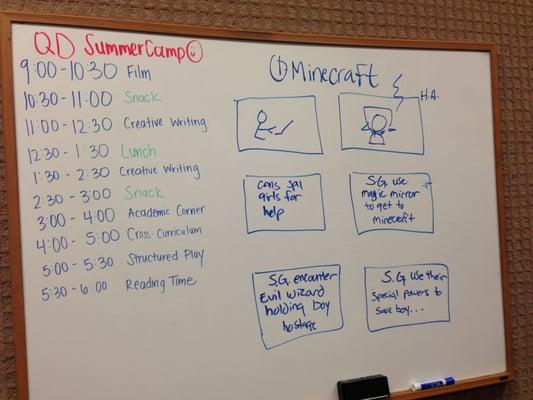 QD SummerCamp
9:00-10:30 Film
10:30-11:00 Snack
11:00-12:30 Creative Writing
12:30-1:30 Lunch
1:30-2:30 Creative Writing
2:30-3:00 Snack
3:00-4:00 Academic Corner
4:00-5:00 Cross-Curriculum
5:00-5:30 Structured Play
5:30-6:00 Reading Time
① Minecraft
H.A.
girls for
help
S.G. use
magic mirror
to get to
minecraft
S.G. encounter
Evil wizard
holding boy
hostage
S.G. use their
special powers to
save boy...